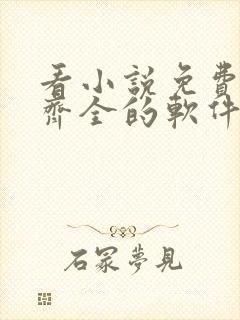 看小説免費
齊全的軟件
石冢夢見